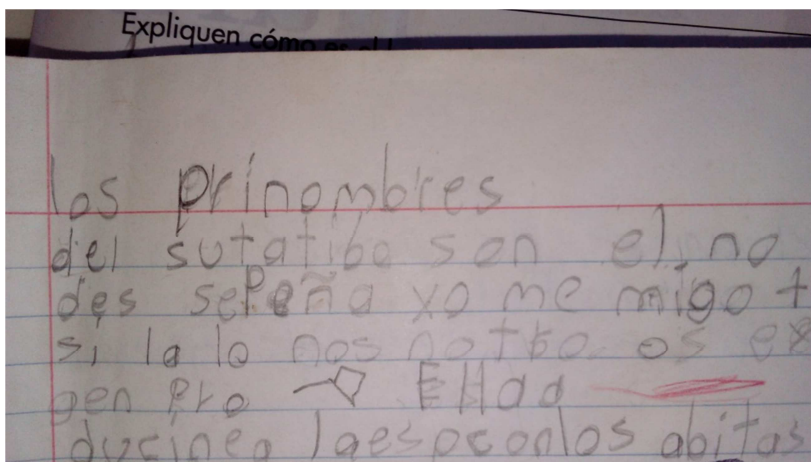 Expliquen cómo es el
los prinombres
del sutatibo son el, no
des sepeña yo me migo t
si la lo nos notro os ex
gen pro Ellad
ducinea laespoconlos abitas